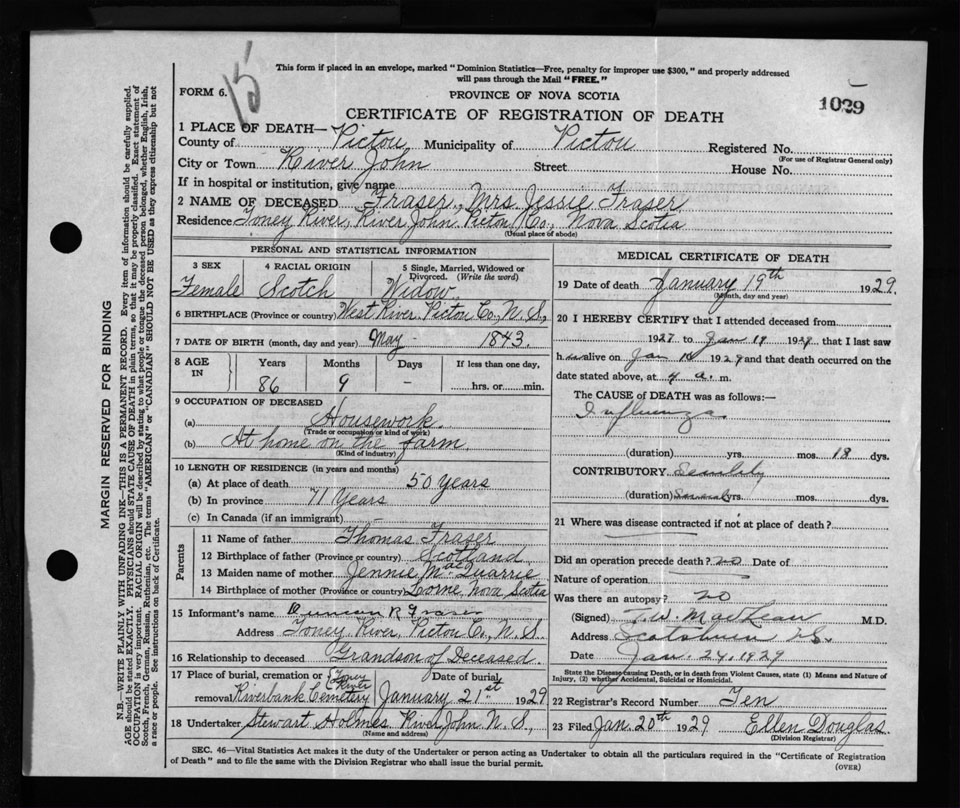 15
This form if placed in an envelope, marked "Dominion Statistics—Free, penalty for improper use $300," and properly addressed
will pass through the Mail "FREE."
FORM 6.
PROVINCE OF NOVA SCOTIA
1029
CERTIFICATE OF REGISTRATION OF DEATH
1 PLACE OF DEATH—
County of Pictou Municipality of Pictou Registered No.
(For use of Registrar General only)
City or Town River John Street House No.
If in hospital or institution, give name
2 NAME OF DECEASED Fraser, Mrs Jessie Fraser
Residence Toney River, River John, Pictou Co., Nova Scotia
(Usual place of abode)
PERSONAL AND STATISTICAL INFORMATION
3 SEX 4 RACIAL ORIGIN 5 Single, Married, Widowed or
Divorced. (Write the word)
Female Scotch Widow
6 BIRTHPLACE (Province or country) West River, Pictou Co., N. S.,
7 DATE OF BIRTH (month, day and year) May - 1843.
8 AGE IN Years Months Days If less than one day,
86 9 - ......hrs. or......min.
9 OCCUPATION OF DECEASED
(a) Housework.
(Trade or occupation or kind of work)
(b) At home on the farm.
(Kind of industry)
10 LENGTH OF RESIDENCE (in years and months)
(a) At place of death 50 years
(b) In province 71 Years
(c) In Canada (if an immigrant) -
Parents
11 Name of father Thomas Fraser
12 Birthplace of father (Province or country) Scotland
13 Maiden name of mother Jennie MacQuarrie
14 Birthplace of mother (Province or country) Lorne, Nova Scotia
15 Informant's name Duncan R Fraser
Address Toney River, Pictou Co., N. S.
16 Relationship to deceased Grandson of Deceased.
17 Place of burial, cremation or Toney River Date of burial
removal Riverbank Cemetery January 21st 1929
18 Undertaker Stewart Holmes, River John N. S.,
(Name and address)
MEDICAL CERTIFICATE OF DEATH
19 Date of death January 19th 1929.
(Month, day and year)
20 I HEREBY CERTIFY that I attended deceased from
1927 to Jan 19 1929 that I last saw
h er alive on Jan 1929 and that death occurred on
date stated above, at 4 a. m.
The CAUSE of DEATH was as follows:—
Influenza
(duration) yrs. mos. 18 dys.
CONTRIBUTORY Senility
(duration) Several yrs. mos. dys.
21 Where was disease contracted if not at place of death?
Did an operation precede death? no Date of
Nature of operation
Was there an autopsy? no
(Signed) M.D.
Address Scotsburn N.S.
Date Jan. 24, 1929
State the Disease causing Death, or in death from Violent Causes, state (1) Means and Nature of
Injury, (2) whether Accidental, Suicidal or Homicidal.
22 Registrar's Record Number Ten
23 Filed Jan 20th 1929 Ellen Douglas
(Division Registrar)
SEC. 46—Vital Statistics Act makes it the duty of the Undertaker or person acting as Undertaker to obtain all the particulars required in the "Certificate of Registration
of Death" and to file the same with the Division Registrar who shall issue the burial permit.
(OVER)
MARGIN RESERVED FOR BINDING
N.B.—WRITE PLAINLY WITH UNFADING INK—THIS IS A PERMANENT RECORD. Every item of information should be carefully supplied.
AGE should be stated EXACTLY. PHYSICIANS should STATE CAUSE OF DEATH in plain terms, so that it may be properly classified. Exact statement of
OCCUPATION is very important. RACIAL ORIGIN will be described by stating to what people or tongue the deceased person belonged, whether English, Irish,
Scotch, French, German, Russian, Ruthenian, etc. The terms "AMERICAN" or "CANADIAN" SHOULD NOT BE USED as they express citizenship but not
a race or people. See instructions on back of Certificate.